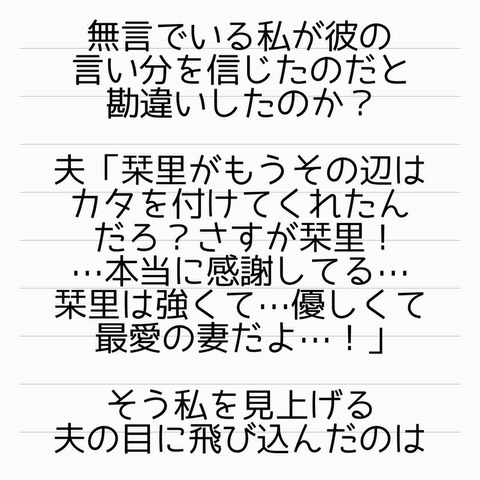 無言でいる私が彼の
言い分を信じたのだと
勘違いしたのか？
夫「栞里がもうその辺は
カタを付けてくれたん
だろ？さすが栞里！
…本当に感謝してる…
栞里は強くて…優しくて
最愛の妻だよ…！」
そう私を見上げる
夫の目に飛び込んだのは